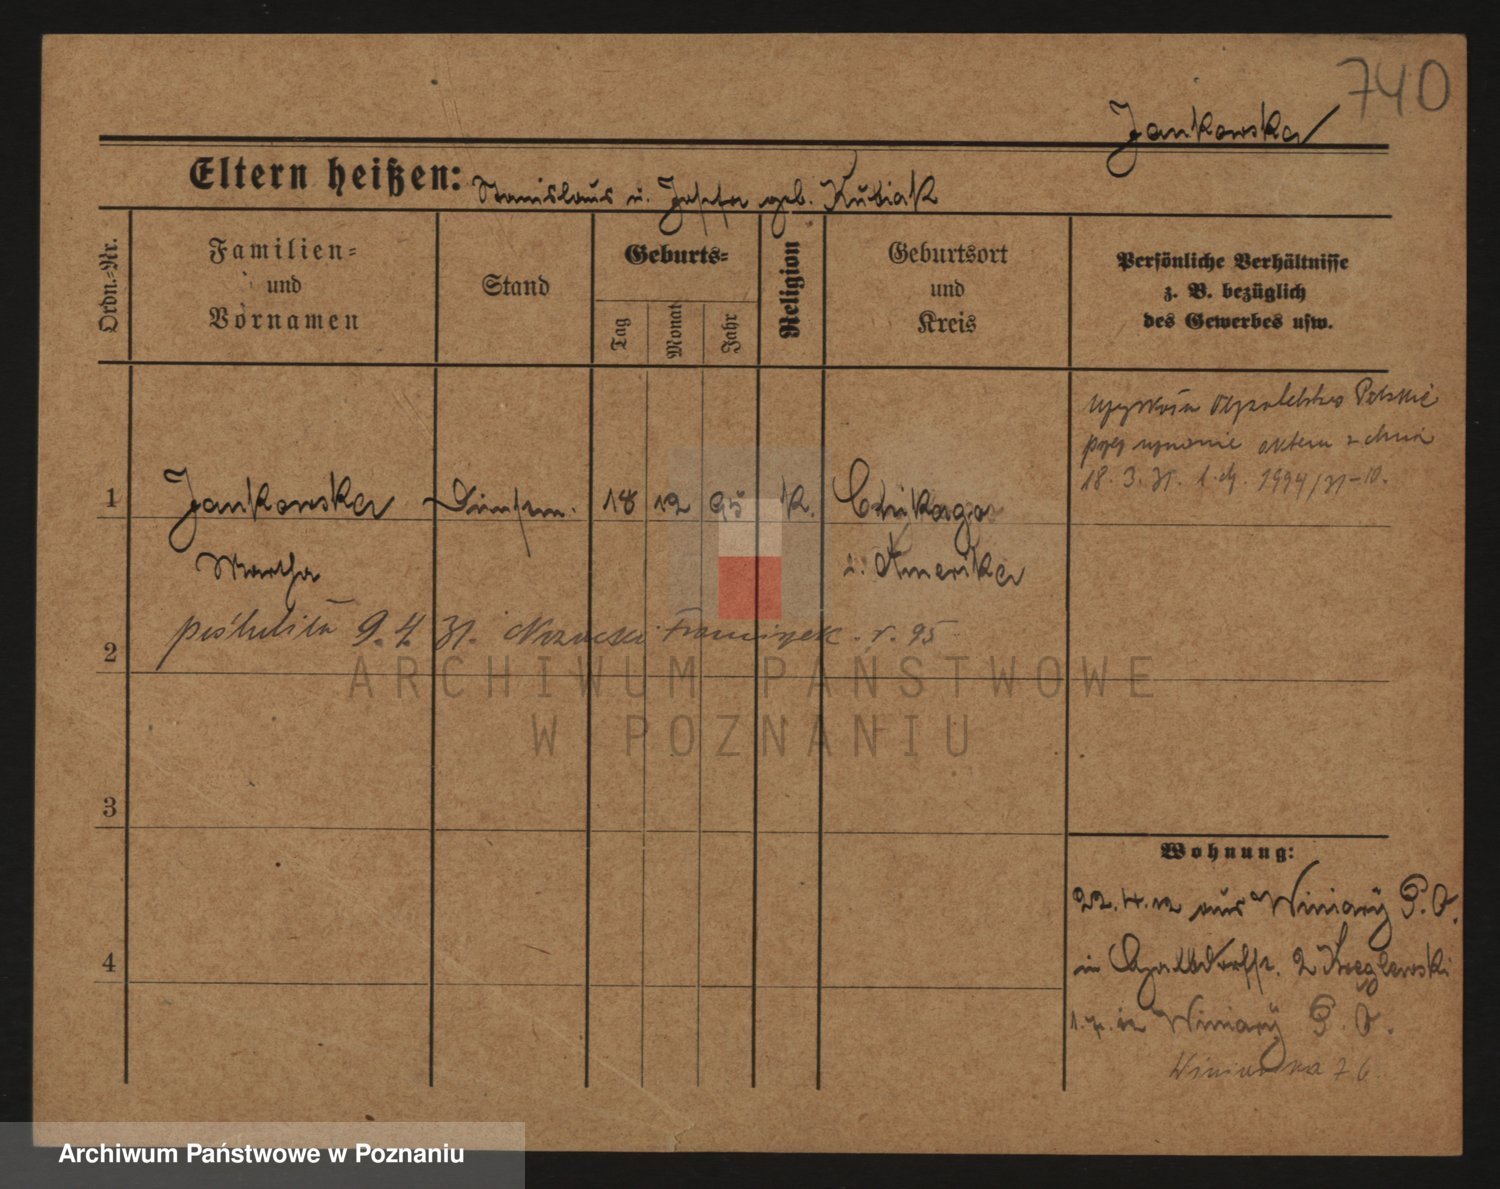 740
Jankowska
Eltern heißen: Stanislaus u. Josefa geb. Kubiak
Ordn.-Nr.
Familien-
und
Vornamen
Stand
Geburts-
Tag
Monat
Jahr
Religion
Geburtsort
und
Kreis
Persönliche Verhältnisse
z. B. bezüglich
des Gewerbes usw.
Obywatelstwo Polskie
przez aktem z dnia
18. 3. 31. 1994/31-10.
1 Jankowska 18 12 95 k. Chikago
Martha i. Amerika
poślubiła 9. 4. 31. Franciszek r. 95
2
3
4
Wohnung:
22.4.12 aus Winiary P.O.
in 2
Winiary P. O.
Winiarska 76
ARCHIWUM PAŃSTWOWE
W POZNANIU
Archiwum Państwowe w Poznaniu